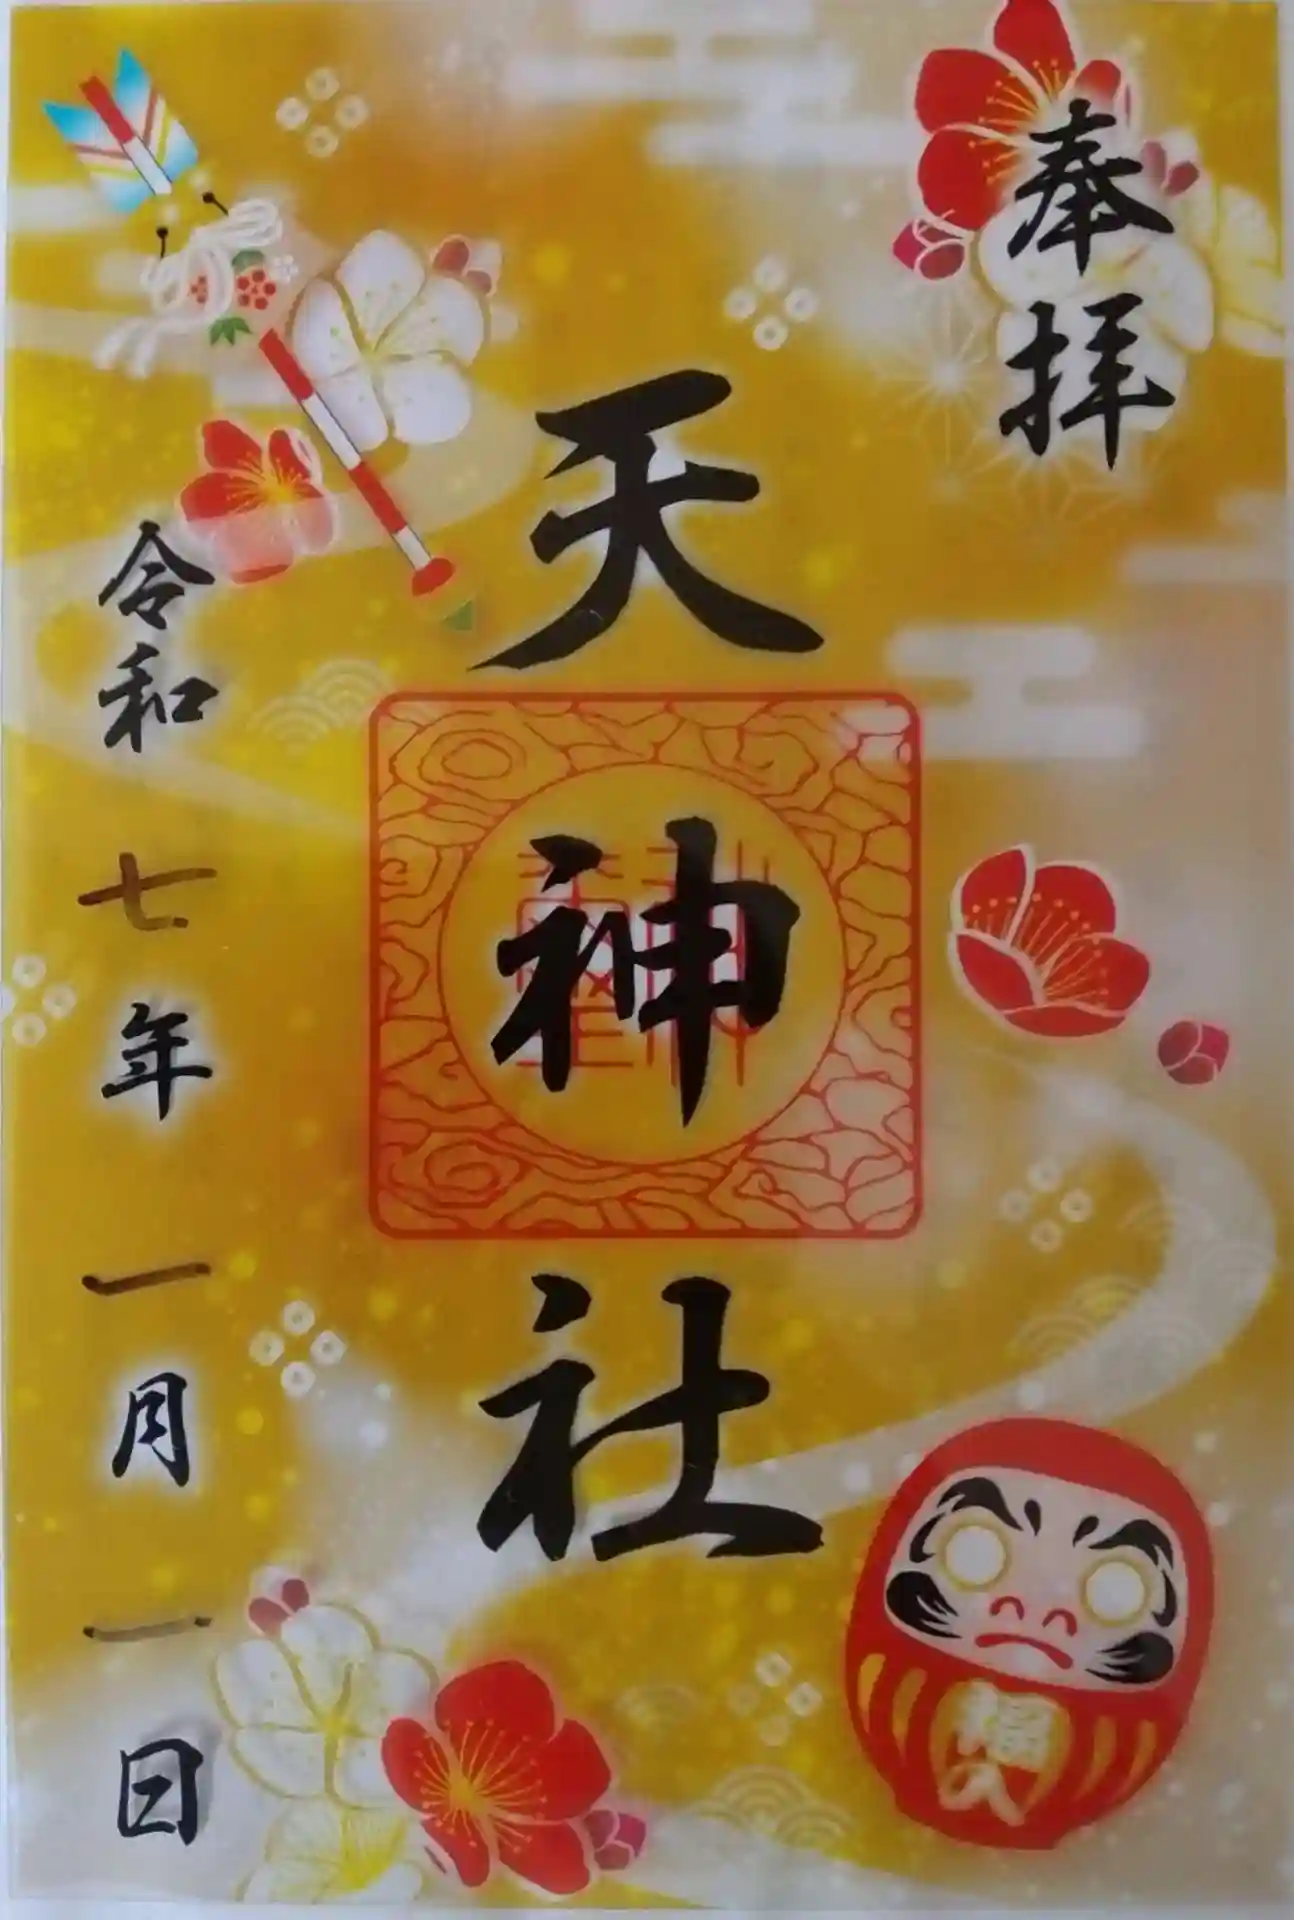 奉拝
天神社
令和七年一月一日
福入